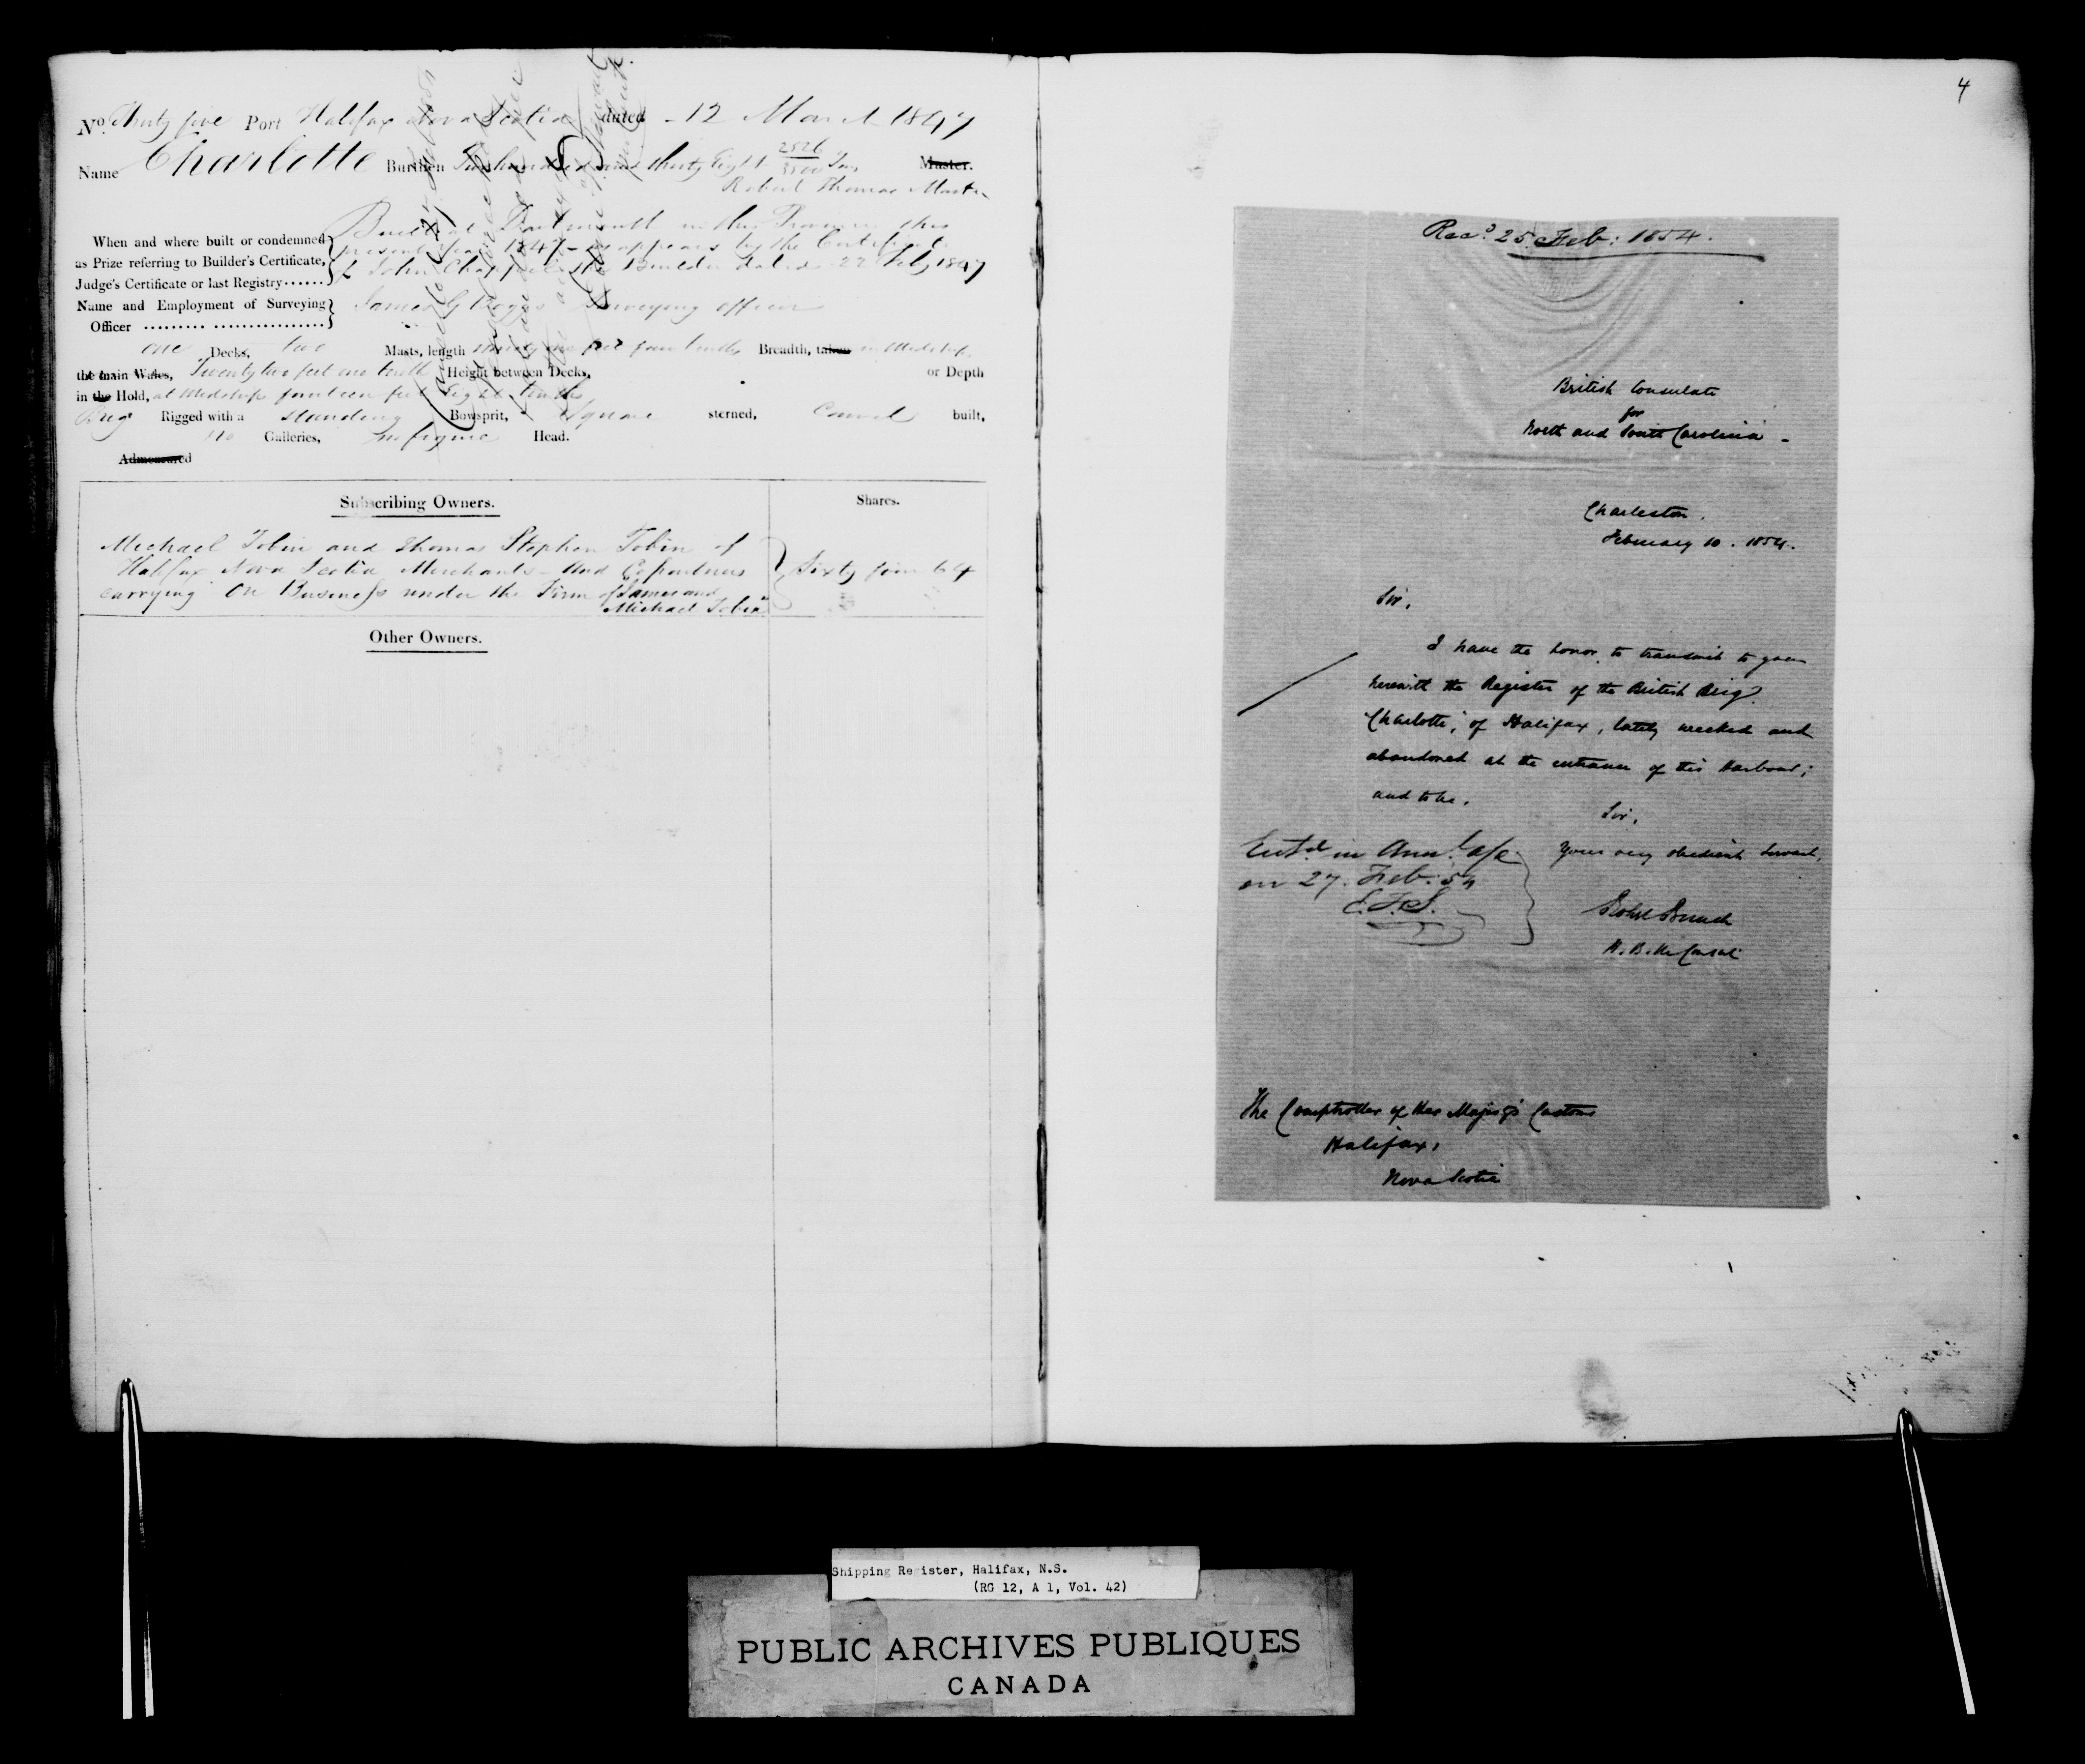 No. Thirty five Port Halifax Nova Scotia dated - 12 March 1847
Name Charlotte Burthen Two hundred and thirty Eight 2526/3500 Tons Master.
Robert Thomas Master
Built at Dartmouth in this Province this
When and where built or condemned present year 1847 - as appears by the Certificate
as Prize referring to Builder's Certificate, of John Chappell the Builder dated 22 Feby 1847
Judge's Certificate or last Registry......
Name and Employment of Surveying James G Boggs Surveying officer
Officer ......... ................
one Decks, two Masts, length ninety one feet four tenths, Breadth, taken in Midships
the main Wales, Twenty two feet one tenth Height between Decks, or Depth
in the Hold, at Midships fourteen feet Eight tenths
Brig Rigged with a standing Bowsprit, Square sterned, Carvel built,
no Galleries, no figure Head.
Admeasured
Subscribing Owners. Shares.
Michael Tobin and Thomas Stephen Tobin of
Halifax Nova Scotia Merchants - and Copartners Sixty four 64
carrying on Business under the Firm of James and
Michael Tobin
Other Owners.
4
Recd. 25 Feb: 1854.
British Consulate
for
North and South Carolina -
Charleston.
February 10. 1854.
Sir,
I have the honor to transmit to you
herewith the Register of the British Brig
"Charlotte", of Halifax, lately wrecked and
abandoned at the entrance of this Harbour;
and to be,
Sir,
Your very obedient servant,
Entd. in Annl. a/c
on 27. Feb: 54
Robt Bunch
H. B. M. Consul
The Comptroller of Her Majesty's Customs
Halifax,
Nova Scotia
Shipping Register, Halifax, N.S.
(RG 12, A 1, Vol. 42)
PUBLIC ARCHIVES PUBLIQUES
CANADA